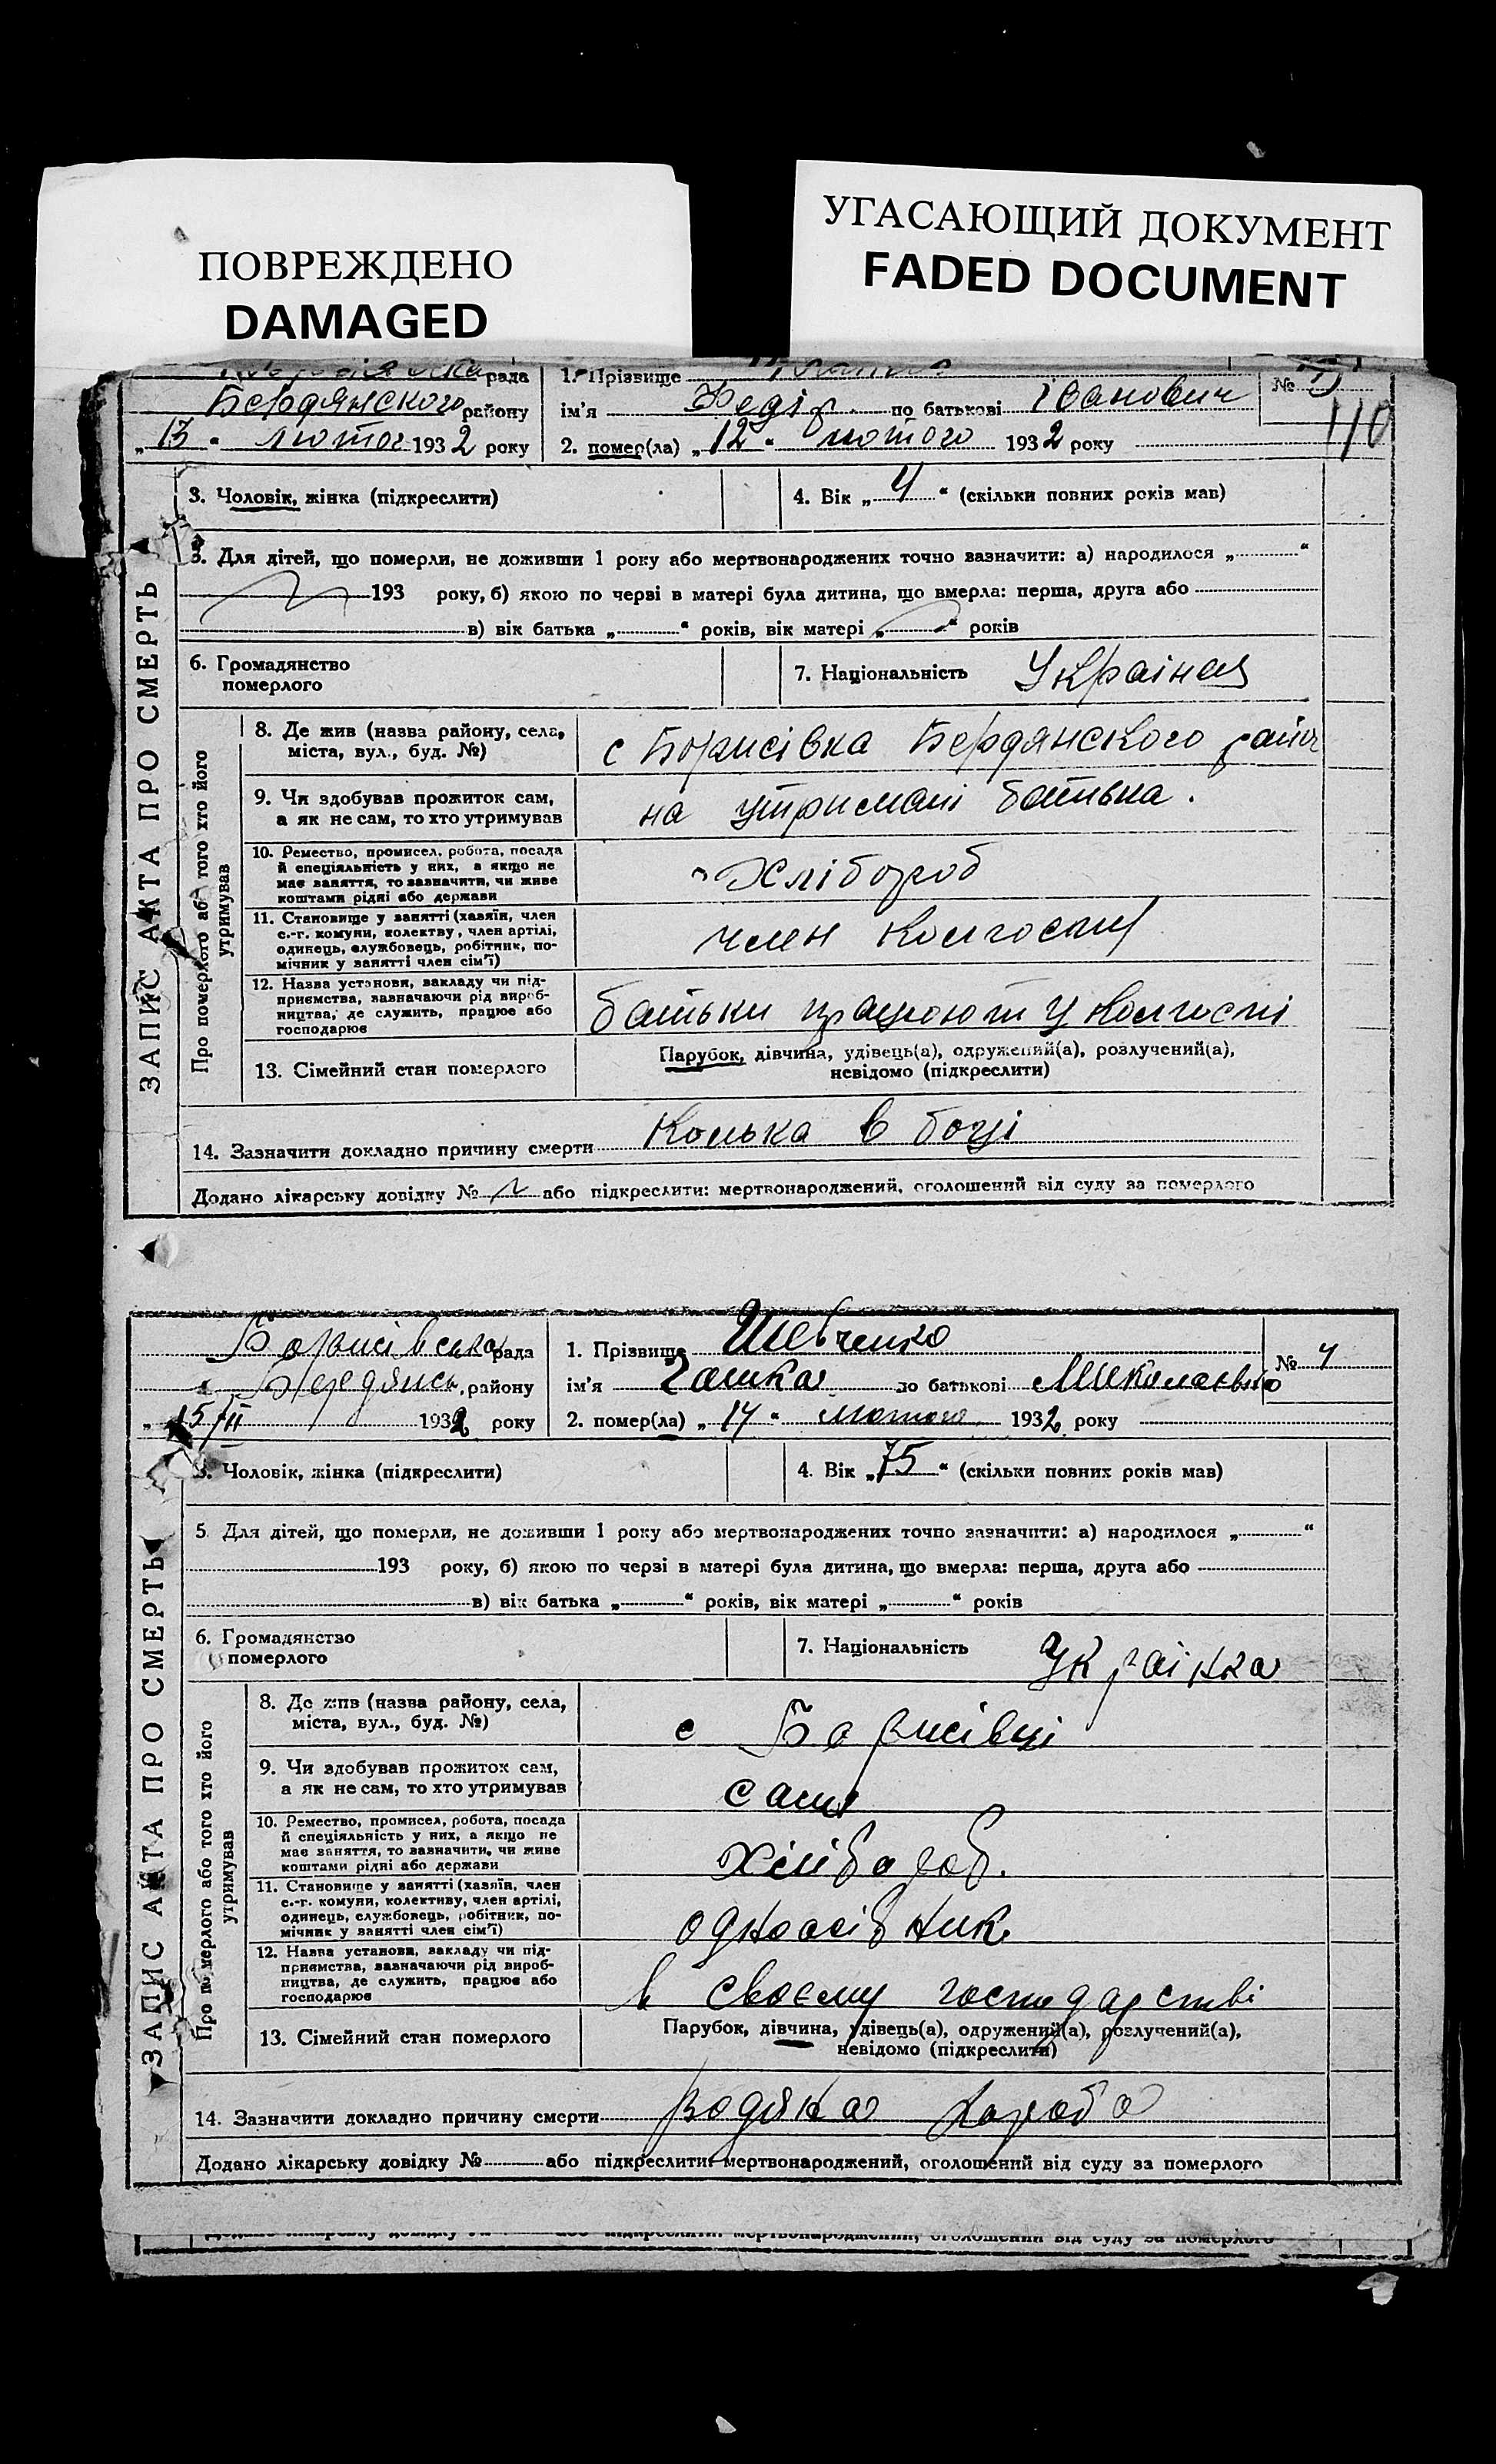 ПОВРЕЖДЕНО
DAMAGED
УГАСАЮЩИЙ ДОКУМЕНТ
FADED DOCUMENT
рада
1. Прізвище
№
Бердянского району
ім'я Федір по батькові Іванович
110
„13“ лютог 1932 року
2. помер(ла) „12“ лютого 1932 року
ЗАПИС АКТА ПРО СМЕРТЬ
3. Чоловік, жінка (підкреслити)
4. Вік „4“ (скільки повних років мав)
5. Для дітей, що померли, не доживши 1 року або мертвонароджених точно зазначити: а) народилося „ “
193 року, б) якою по черзі в матері була дитина, що вмерла: перша, друга або
в) вік батька „ “ років, вік матері „ “ років
6. Громадянство
померлого
7. Національність
Про померлого або того хто його
утримував
8. Де жив (назва району, села,
міста, вул., буд. №)
с Борисівка Бердянского
9. Чи здобував прожиток сам,
а як не сам, то хто утримував
на утримані батька.
10. Ремество, промисел, робота, посада
й спеціяльність у них, а якщо не
має заняття, то зазначити, чи живе
коштами рідні або держави
Хлібороб
11. Становище у занятті (хазяїн, член
с.-г. комуни, колектву, член артілі,
одинець, службовець, робітник, по-
мічник у занятті член сім'ї)
член колгоспу
12. Назва установи, закладу чи під-
приємства, зазначаючи рід вироб-
ництва, де служить, працює або
господарює
батьки працюют у колгоспі
13. Сімейний стан померлого
Парубок, дівчина, удівець(а), одружений(а), розлучений(а),
невідомо (підкреслити)
14. Зазначити докладно причину смерти Колька в боці
Додано лікарську довідку № або підкреслити: мертвонароджений, оголошений від суду за померлого
Борисівська рада
1. Прізвище Шевченко
№ 4
Бердянськ. району
ім'я по батькові Миколаєвна
„15/II 1932 року
2. помер(ла) „14“ лютого 1932 року
ЗАПИС АКТА ПРО СМЕРТЬ
3. Чоловік, жінка (підкреслити)
4. Вік „75“ (скільки повних років мав)
5. Для дітей, що померли, не доживши 1 року або мертвонароджених точно зазначити: а) народилося „ “
193 року, б) якою по черзі в матері була дитина, що вмерла: перша, друга або
в) вік батька „ “ років, вік матері „ “ років
6. Громадянство
померлого
7. Національність Українка
Про померлого або того хто його
утримував
8. Де жив (назва району, села,
міста, вул., буд. №)
с Борисівці
9. Чи здобував прожиток сам,
а як не сам, то хто утримував
сама
10. Ремество, промисел, робота, посада
й спеціяльність у них, а якщо не
має заняття, то зазначити, чи живе
коштами рідні або держави
Хлібороб.
11. Становище у занятті (хазяїн, член
с.-г. комуни, колективу, член артілі,
одинець, службовець, робітник, по-
мічник у занятті член сім'ї)
односібник
12. Назва установи, закладу чи під-
приємства, зазначаючи рід вироб-
ництва, де служить, працює або
господарює
в своєму господарстві
13. Сімейний стан померлого
Парубок, дівчина, удівець(а), одружений(а), розлучений(а),
невідомо (підкреслити)
14. Зазначити докладно причину смерти Водяна хороба
Додано лікарську довідку № або підкреслити: мертвонароджений, оголошений від суду за померлого
Додано лікарську довідку № або підкреслити: мертвонароджений, оголошений від суду за померлого